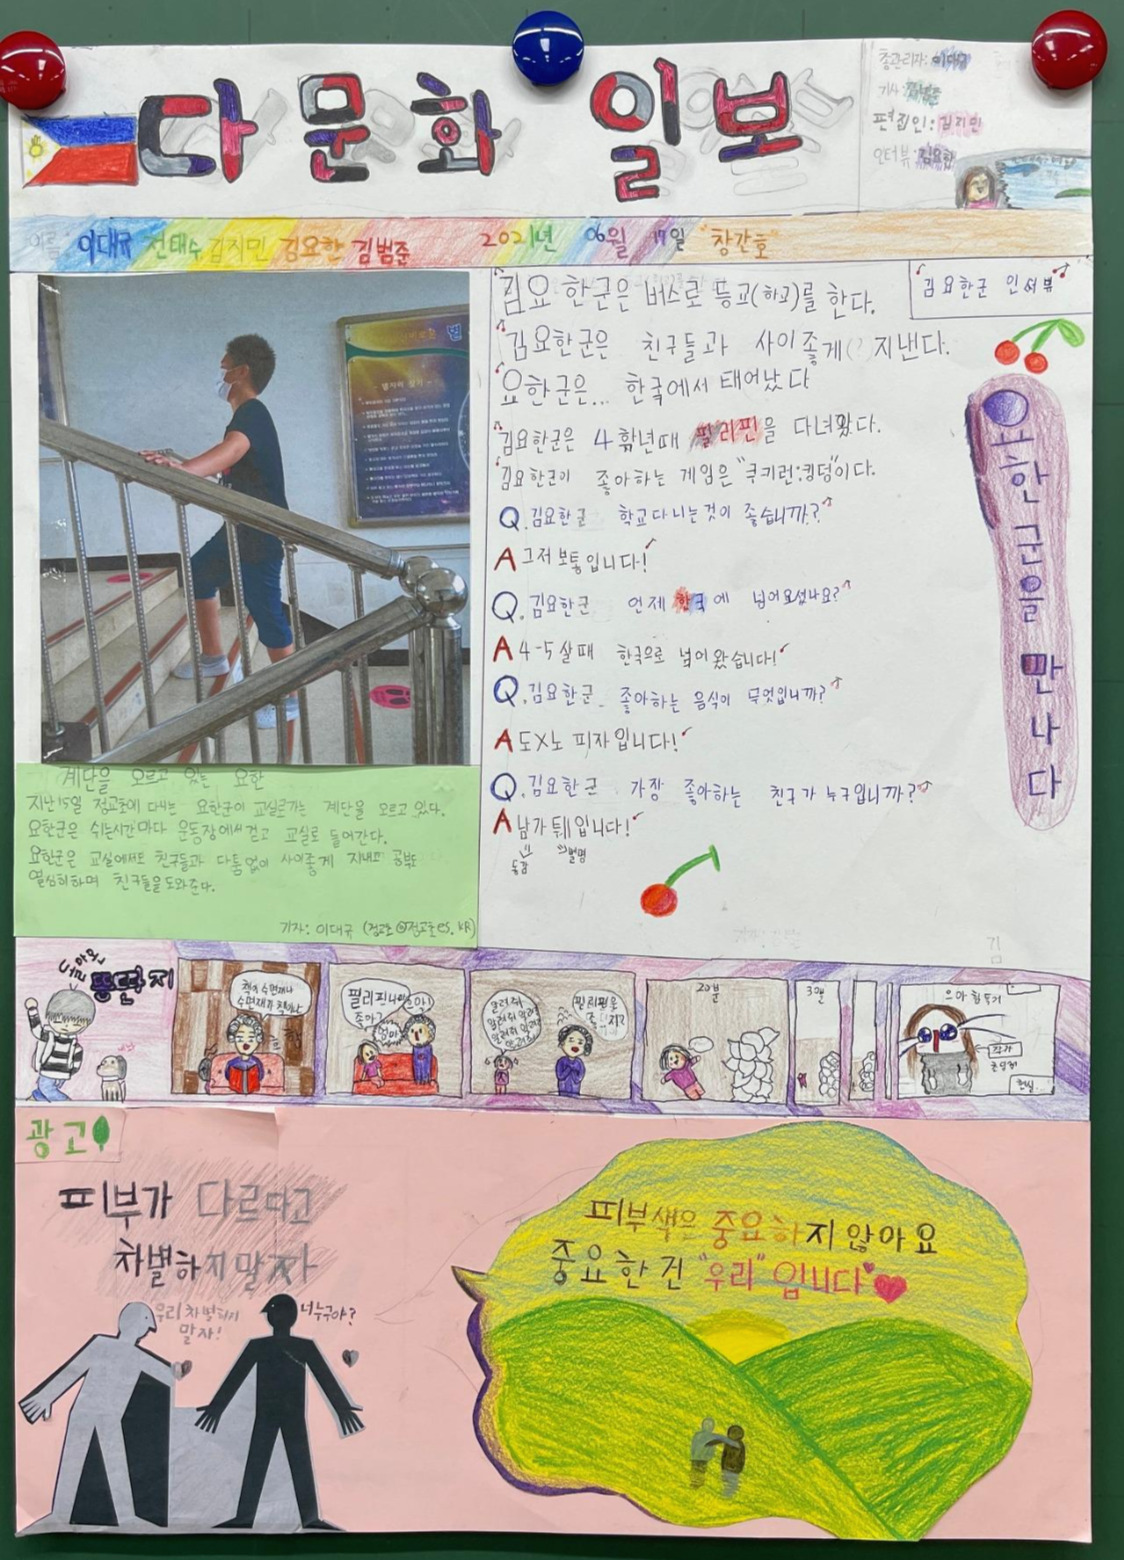 다문화 일보
총관리자: 이대규
기사:
편집인: 김지민
인터뷰: 김요한
이름 이대규 전태수 김지민 김요한 김범준 2021년 06월 17일 "창간호"
김요한군 인터뷰
김요한군은 버스로 등교(하교)를 한다.
김요한군은 친구들과 사이좋게 지낸다.
요한군은... 한국에서 태어났다
김요한군은 4학년때 필리핀을 다녀왔다.
김요한군이 좋아하는 게임은 "쿠키런:킹덤"이다.
Q.김요한군 학교다니는것이 좋습니까?
A 그저 보통입니다!
Q.김요한군 언제 한국에 넘어오셨나요?
A 4-5살때 한국으로 넘어왔습니다!
Q.김요한군 좋아하는 음식이 무엇입니까?
A 도X노 피자입니다!
Q.김요한군 가장 좋아하는 친구가 누구입니까?
A 남가튀입니다!
별명
요한군을 만나다
계단을 오르고 있는 요한
지난15일 점교초에 다니는 요한군이 교실로가는 계단을 오르고 있다.
요한군은 쉬는시간마다 운동장에서걷고 교실로 들어간다.
요한군은 교실에서도 친구들과 다툼없이 사이좋게 지내고 공부도
열심히하며 친구들을도와준다.
기자: 이대규
똥딴지
책이 수면제냐
수면제가 책이냐
필리핀나라
좋아?
엄마
20분
3일
작가
현실
광고
피부가 다르다고
차별하지말자
우리차별하지
말자!
너누구야?
피부색은 중요하지 않아요
중요한건 "우리"입니다